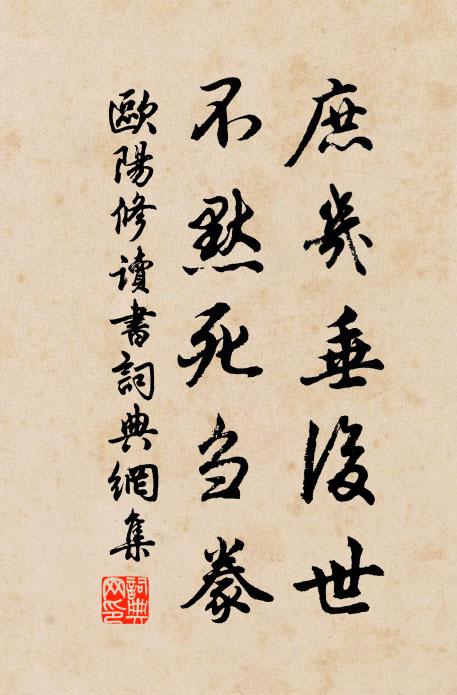 庶幾垂後世
不默死刍豢
歐陽修讀書詞典網集
詞典
网印